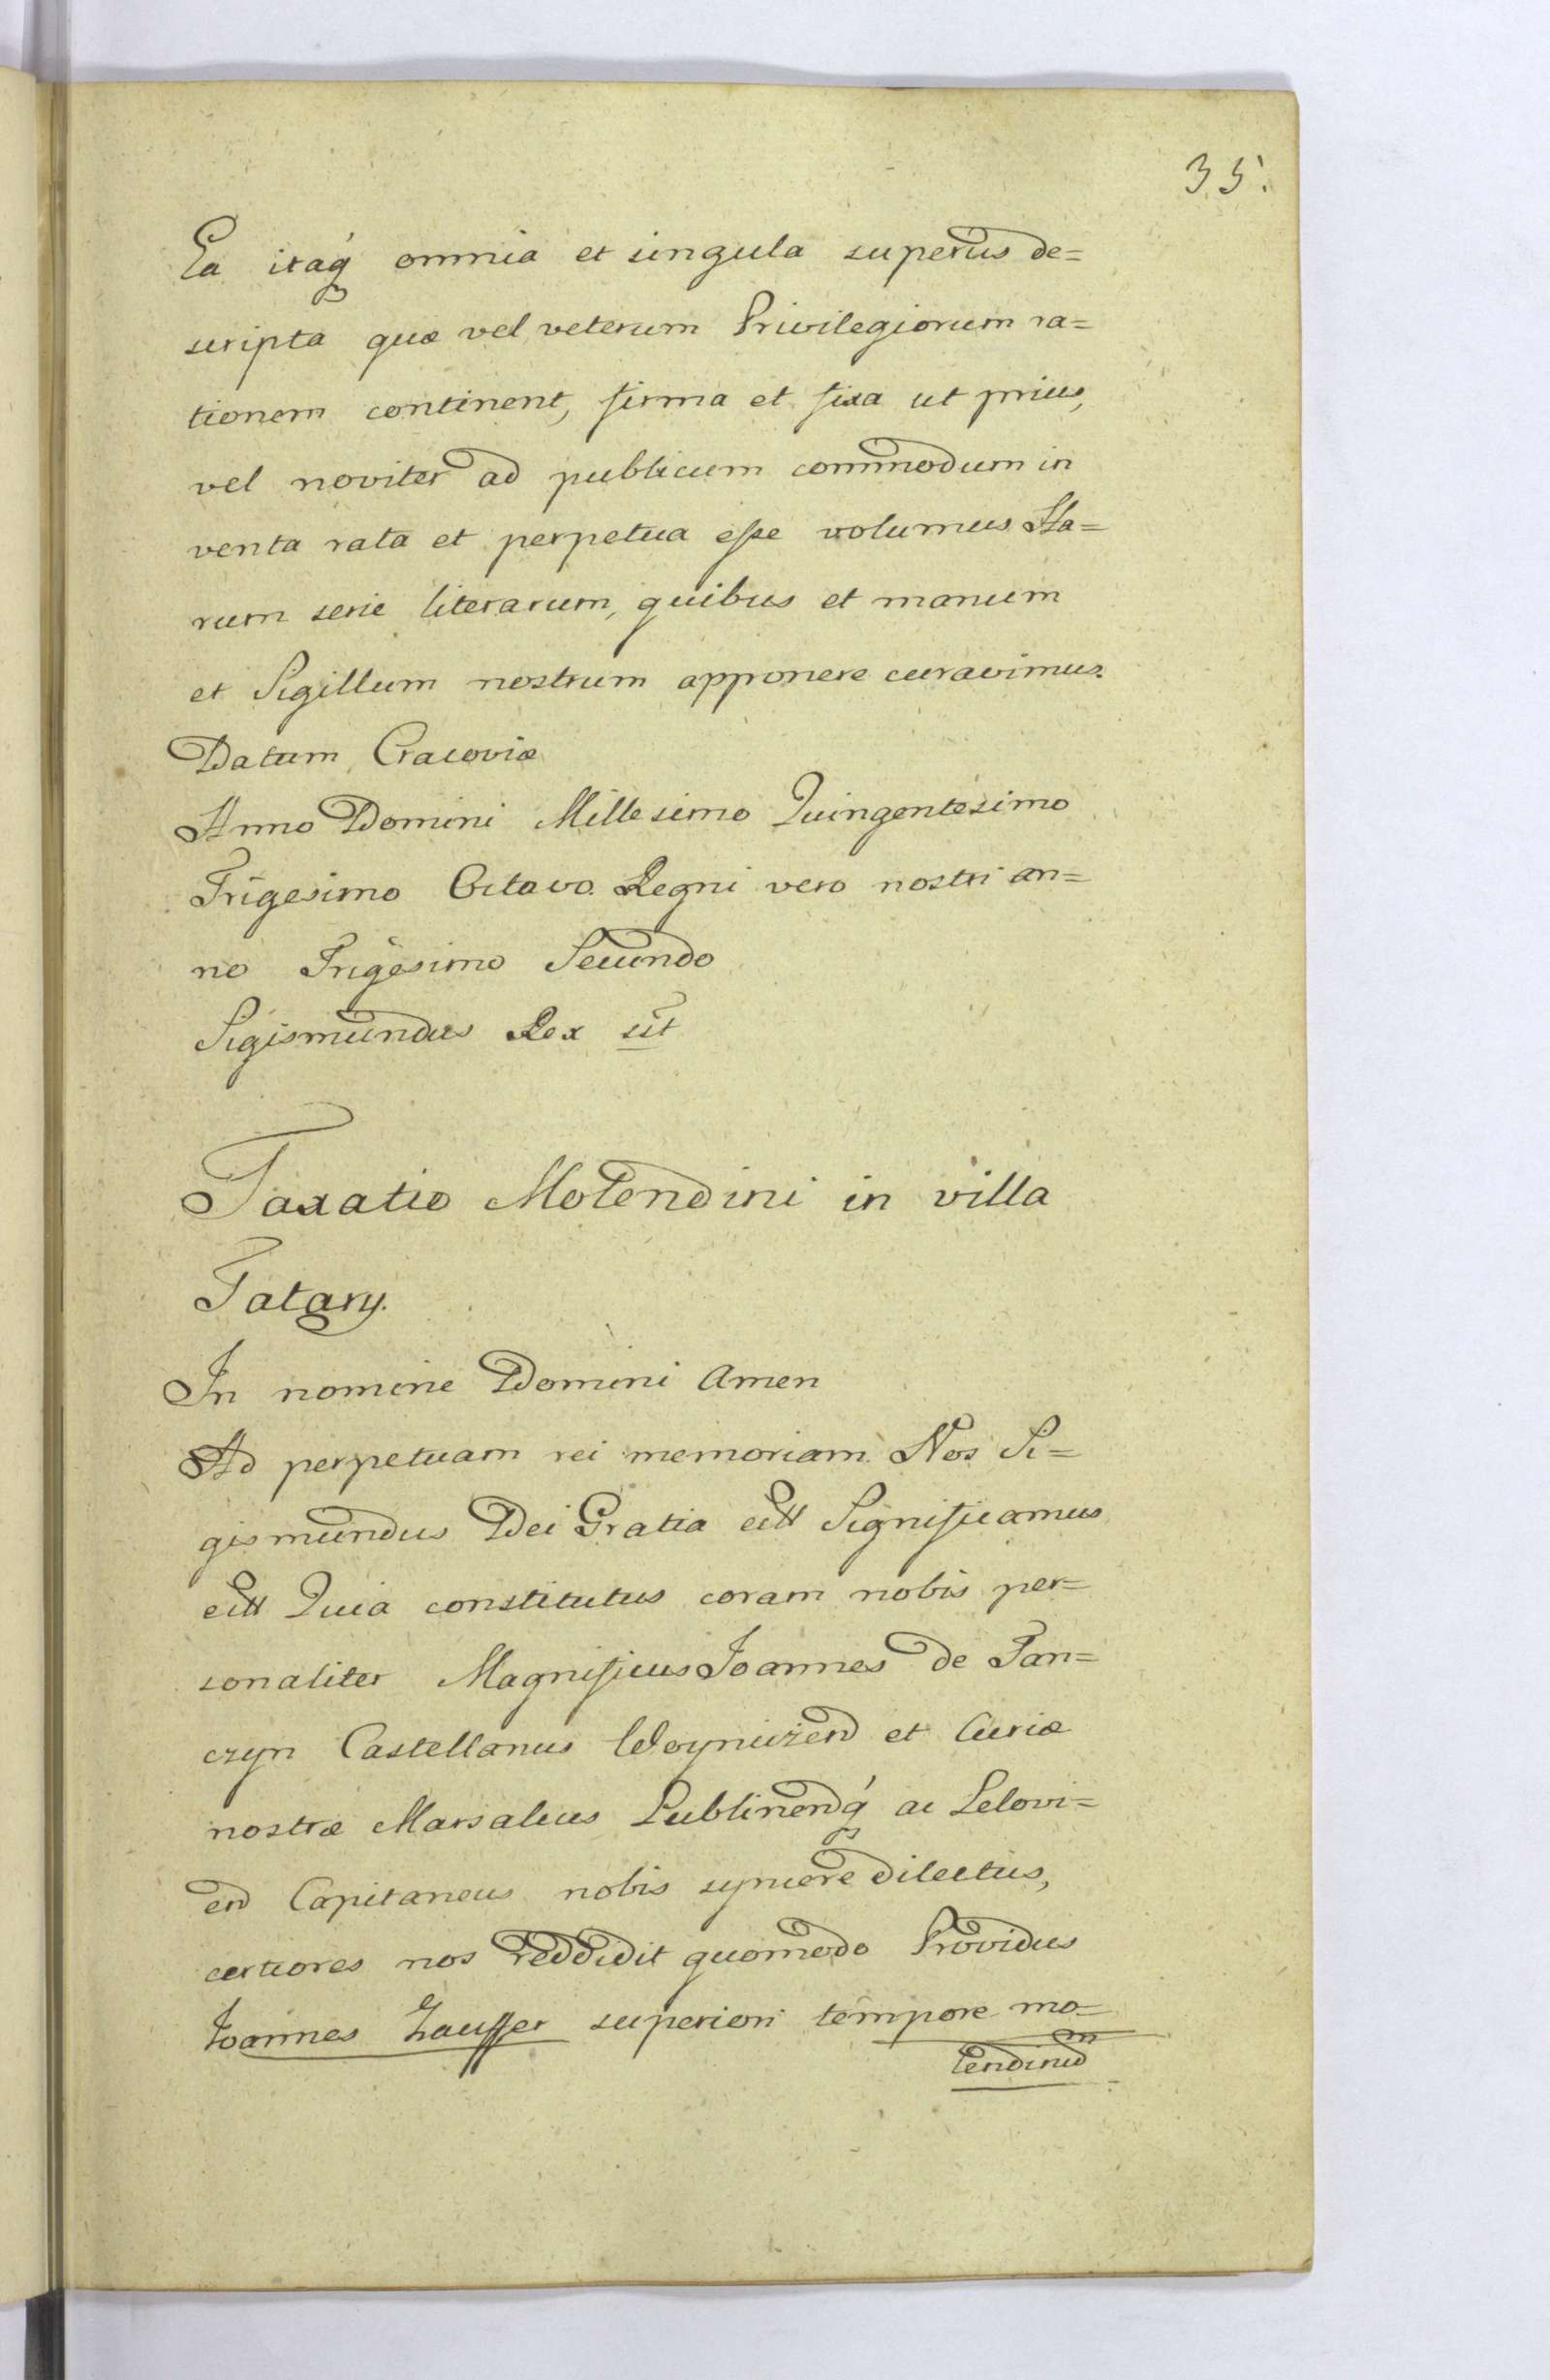 35.
Ea itaq́ omnia et singula superius de=
scripta quæ vel veterum Privilegiorum ra=
tionem continent, firma et fixa ut prius,
vel noviter ad publicum commodum in
venta rata et perpetua esse volumus Ha=
rum serie literarum, quibus et manum
et Sigillum nostrum apponere curavimus.
Datum Cracoviæ
Anno Domini Millesimo Quingentesimo
Trigesimo Octavo. Regni vero nostri an=
no Trigesimo Secundo
Sigismundus Rex sst
Taxatio Molendini in villa
Tatary.
In nomine Domini Amen
Ad perpetuam rei memoriam. Nos Si=
gismundus Dei Gratia ett Significamus
ett Quia constitutus coram nobis per=
sonaliter Magnificus Joannes de Tan=
czyn Castellanus Woynicżen et Curiæ
nostræ Marsalcus Lublinenq́ ac Lelovi=
en Capitaneus nobis syncere dilectus,
certiores nos reddidit quomodo Providus
Joannes Zauffer superiori tempore mo=
lendinum